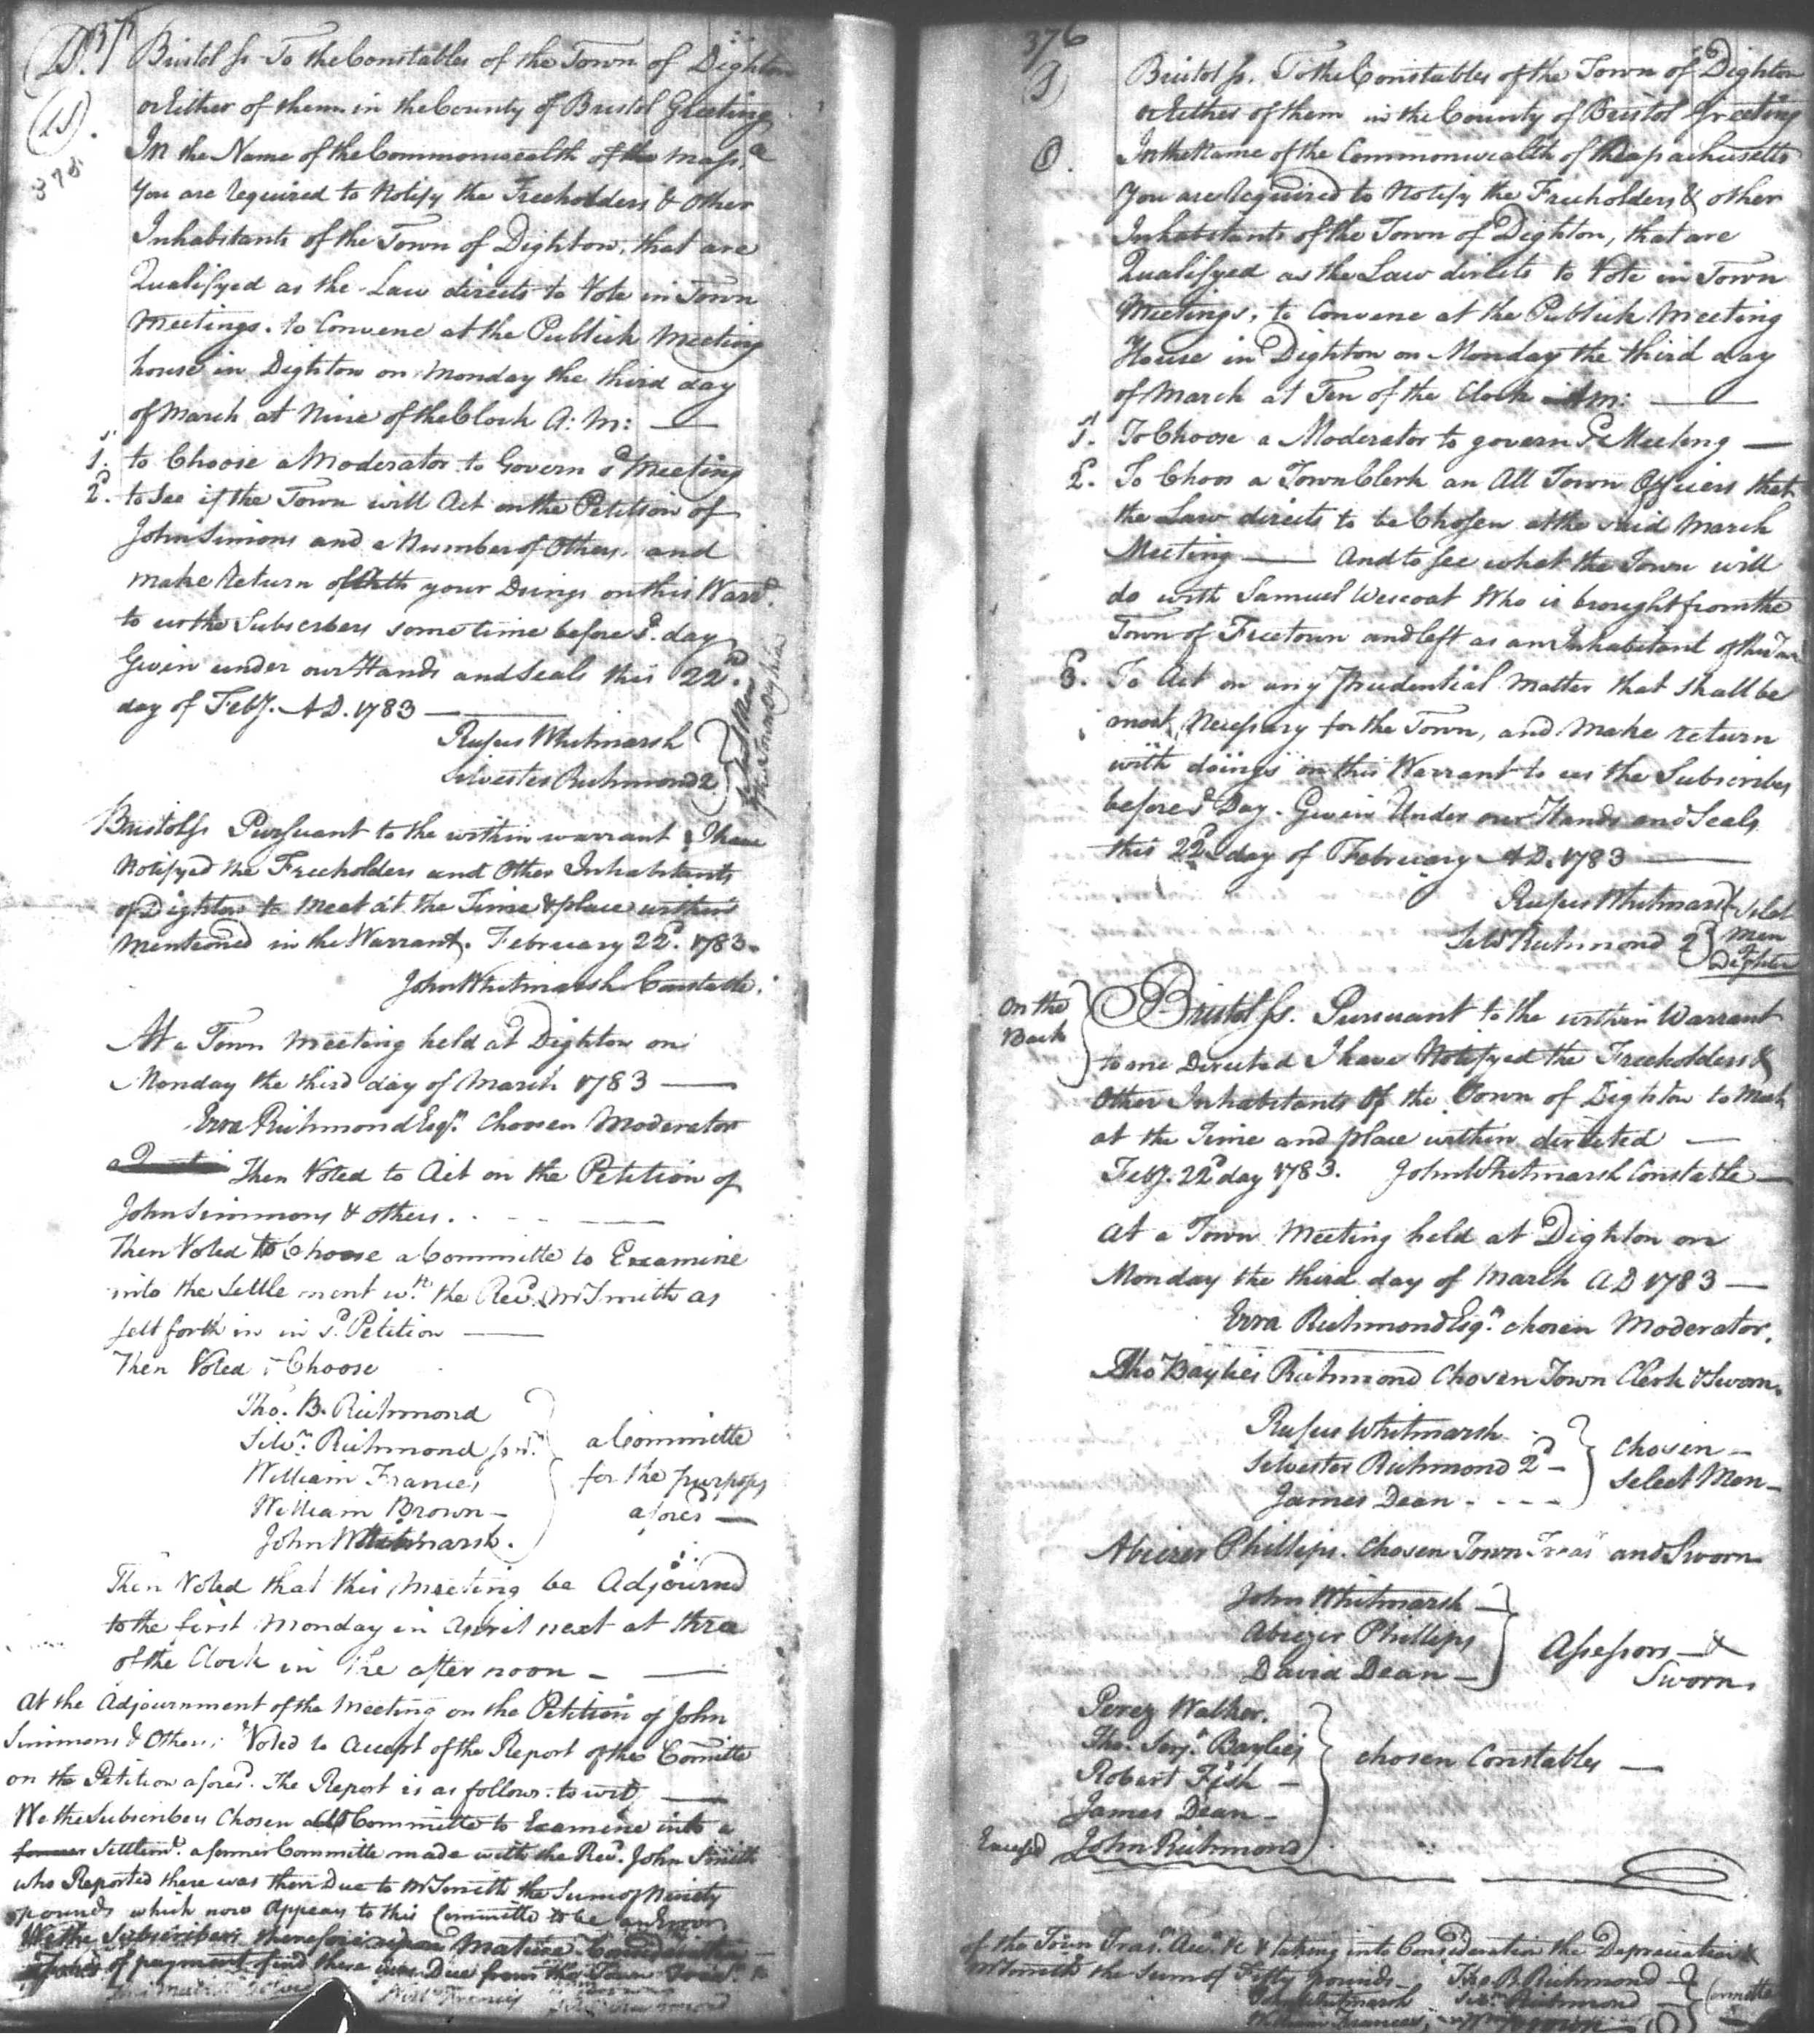 375
Bristol ss To the Constables of the Town of Dighton
or Either of them in the County of Bristol Greeting
In the Name of the Commonwealth of the Mass.a
You are required to Notify the Freeholders & Other
Inhabitants of the Town of Dighton, that are
Qualifyed as the Law directs to Vote in Town
Meetings. to Convene at the Publick Meeting
house in Dighton on Monday the third day
of March at Nine of the Clock A: M:
1. to Choose a Moderator to Govern sd Meeting
2d. to see if the Town will Act on the Petition of
John Simons and a Number of Others. and
make Return of your Doings on this Warrt.
to us the Subscribers some time before sd. day
Given under our Hands and Seals this 22nd.
day of Feby. AD. 1783
Rufus Whitmarsh
Silvester Richmond 2
Select Men of the Town Dighton
Bristol ss Pursuant to the within warrant I have
Notifyed the Freeholders and Other Inhabitants
of Dighton to Meet at the Time & place within
Mentioned in the Warrant. February 22d. 1783.
John Whitmarsh Constable.
At a Town Meeting held at Dighton on
Monday the third day of March 1783
Ezra Richmond Esqr. Choosen Moderator
Then Voted to Act on the Petition of
John Simmons & others.
Then Voted to Choose a Committe to Examine
into the Settlement wth. the Revd. Mr Smith as
sett forth in in sd. Petition
Then Voted & Choose
Tho. B. Richmond
Silvr. Richmond junr.
William Frances
William Brown
John Whitmarsh.
a Committe
for the purpose
aforesd
Then Voted that this Meeting be Adjournd
to the first Monday in April next at three
of the Clock in the after noon
At the Adjournment of the Meeting on the Petition of John
Simmons & Others; Voted to Accept of the Report of the Comitte
on the Petition aforesd. The Report is as follows. to wit,
We the Subscribers Chosen a Committe to Examine into a
former Settlemt. a former Committe made with the Revd. John Smith
who Reported there was then Due to Mr Smith the Sum of Ninety
pounds which now Appears to this Committe to be an Error
We the Subscribers therefore upon Mature Consideration
of payment find there was Due from the Town
376
Bristol ss. To the Constables of the Town of Dighton
or Either of them in the County of Bristol Greeting
In the Name of the Commonwealth of Massachusetts
You are Required to Notify the Freeholders & other
Inhabitants of the Town of Dighton, that are
Qualifyed as the Law directs to Vote in Town
Meetings, to Convene at the Publick Meeting
House in Dighton on Monday the third day
of March at Ten of the Clock AM:
1. To Choose a Moderator to govern sd Meeting
2. To Choos a Town Clerk an All Town Officers that
the Law directs to be Chosen at the said March
Meeting And to see what the Town will
do with Samuel Wescoat Who is brought from the
Town of Freetown and left as an Inhabitant of this Town
3. To Act on any Prudential Matter that shall be
most Necessary for the Town, and make return
with doings on this Warrant to us the Subscribers
before sd Day. Given Under our Hands and Seals
this 22d day of February AD. 1783
Rufus Whitmarsh
Silvr Richmond 2d
Select Men Dighton
On the Back
Bristol ss. Pursuant to the within Warrant
to me Directed I have Notifyed the Freeholders &
Other Inhabitants of the Town of Dighton to Meet
at the Time and place within directed
Feby. 22d day 1783. John Whitmarsh Constable
At a Town Meeting held at Dighton on
Monday the third day of March AD 1783
Ezra Richmond Esqr. chosen Moderator.
Tho Baylies Richmond Chosen Town Clerk & Sworn.
Rufus Whitmarsh
Silvester Richmond 2d
James Dean
chosen
Select Men
Abiezer Phillips. Chosen Town Treasr and Sworn
John Whitmarsh
Abiezer Phillips
David Dean
Assessors &
Sworn.
Perez Walker.
Tho. Serjt. Baylies
Robert Fish
James Dean
Excused John Richmond
chosen Constables
of the Town Trasr. Acct. &c & taking into Consideration the Depreciation &
Mr Smith the Sum of Fifty pounds
Tho B. Richmond
John Whitmarsh Silvr. Richmond
William Frances, Wm Brown
Committe